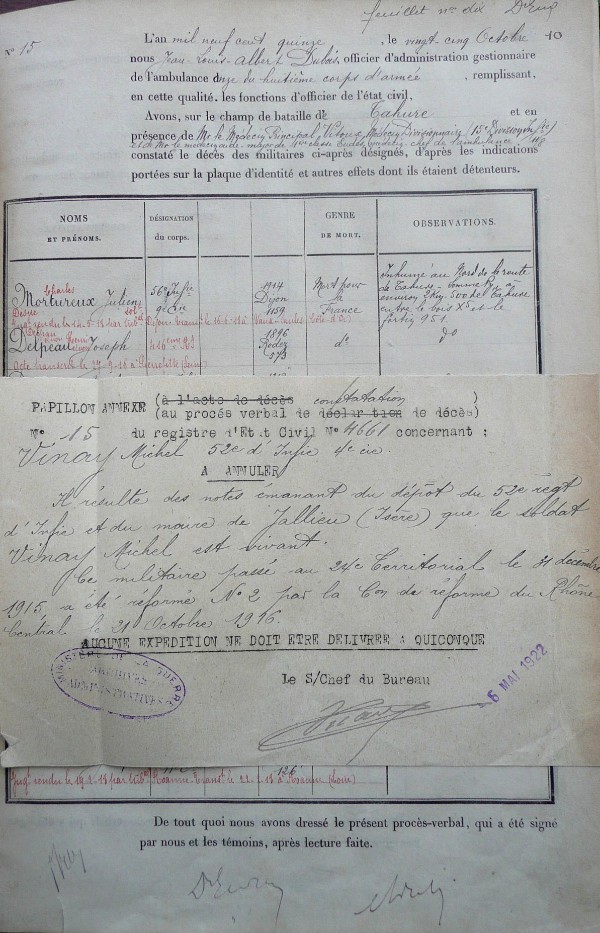 feuillet n° dix
N° 15
L'an mil neuf cent quinze, le vingt-cinq Octobre 10
nous Jean-Louis-Albert Dubois, officier d'administration gestionnaire
de l'ambulance onze du huitième corps d'armée, remplissant,
en cette qualité, les fonctions d'officier de l'état civil,
Avons, sur le champ de bataille de Tahure et en
présence de Mr le Médecin Principal Vitoux, Médecin Divisionnaire (15e Division Inf
constaté le décès des militaires ci-après désignés, d'après les indications
portées sur la plaque d'identité et autres effets dont ils étaient détenteurs.
NOMS ET PRÉNOMS.
DÉSIGNATION du corps.
GENRE DE MORT,
OBSERVATIONS.
Charles
Mortureux Julien 56e Infie 1914 Dijon 1159 Mort pour la France
Inhumé au Nord de la route de Tahure
environ 500 de Tahure
entre le bois et le
Delpeau Joseph 416e 1896 Rodez 573 do do
Acte transcrit le 27-9-18 à Pierrefitte (Seine)
PAPILLON ANNEXE (à l'acte de décès constatation )
(au procés verbal de déclaration de décès)
N° 15 du registre d'Etat Civil N° 4661 concernant :
Vinay Michel 52e d'Infie 4e cie.
A ANNULER
Il résulte des notes émanant du dépôt du 52e regt
d'Infie et du maire de Jallieu (Isère) que le soldat
Vinay Michel est vivant.
Ce militaire passé au 24e Territorial le 31 décembre
1915, a été réformé N° 2 par la Con de réforme du Rhône
Central le 21 Octobre 1916.
AUCUNE EXPEDITION NE DOIT ETRE DELIVREE A QUICONQUE
MINISTÈRE DE LA GUERRE
ARCHIVES ADMINISTRATIVES
Le S/Chef du Bureau
5 MAI 1922
126
Jugt rendu le 19-2-18 par trib. Roanne
De tout quoi nous avons dressé le présent procès-verbal, qui a été signé
par nous et les témoins, après lecture faite.